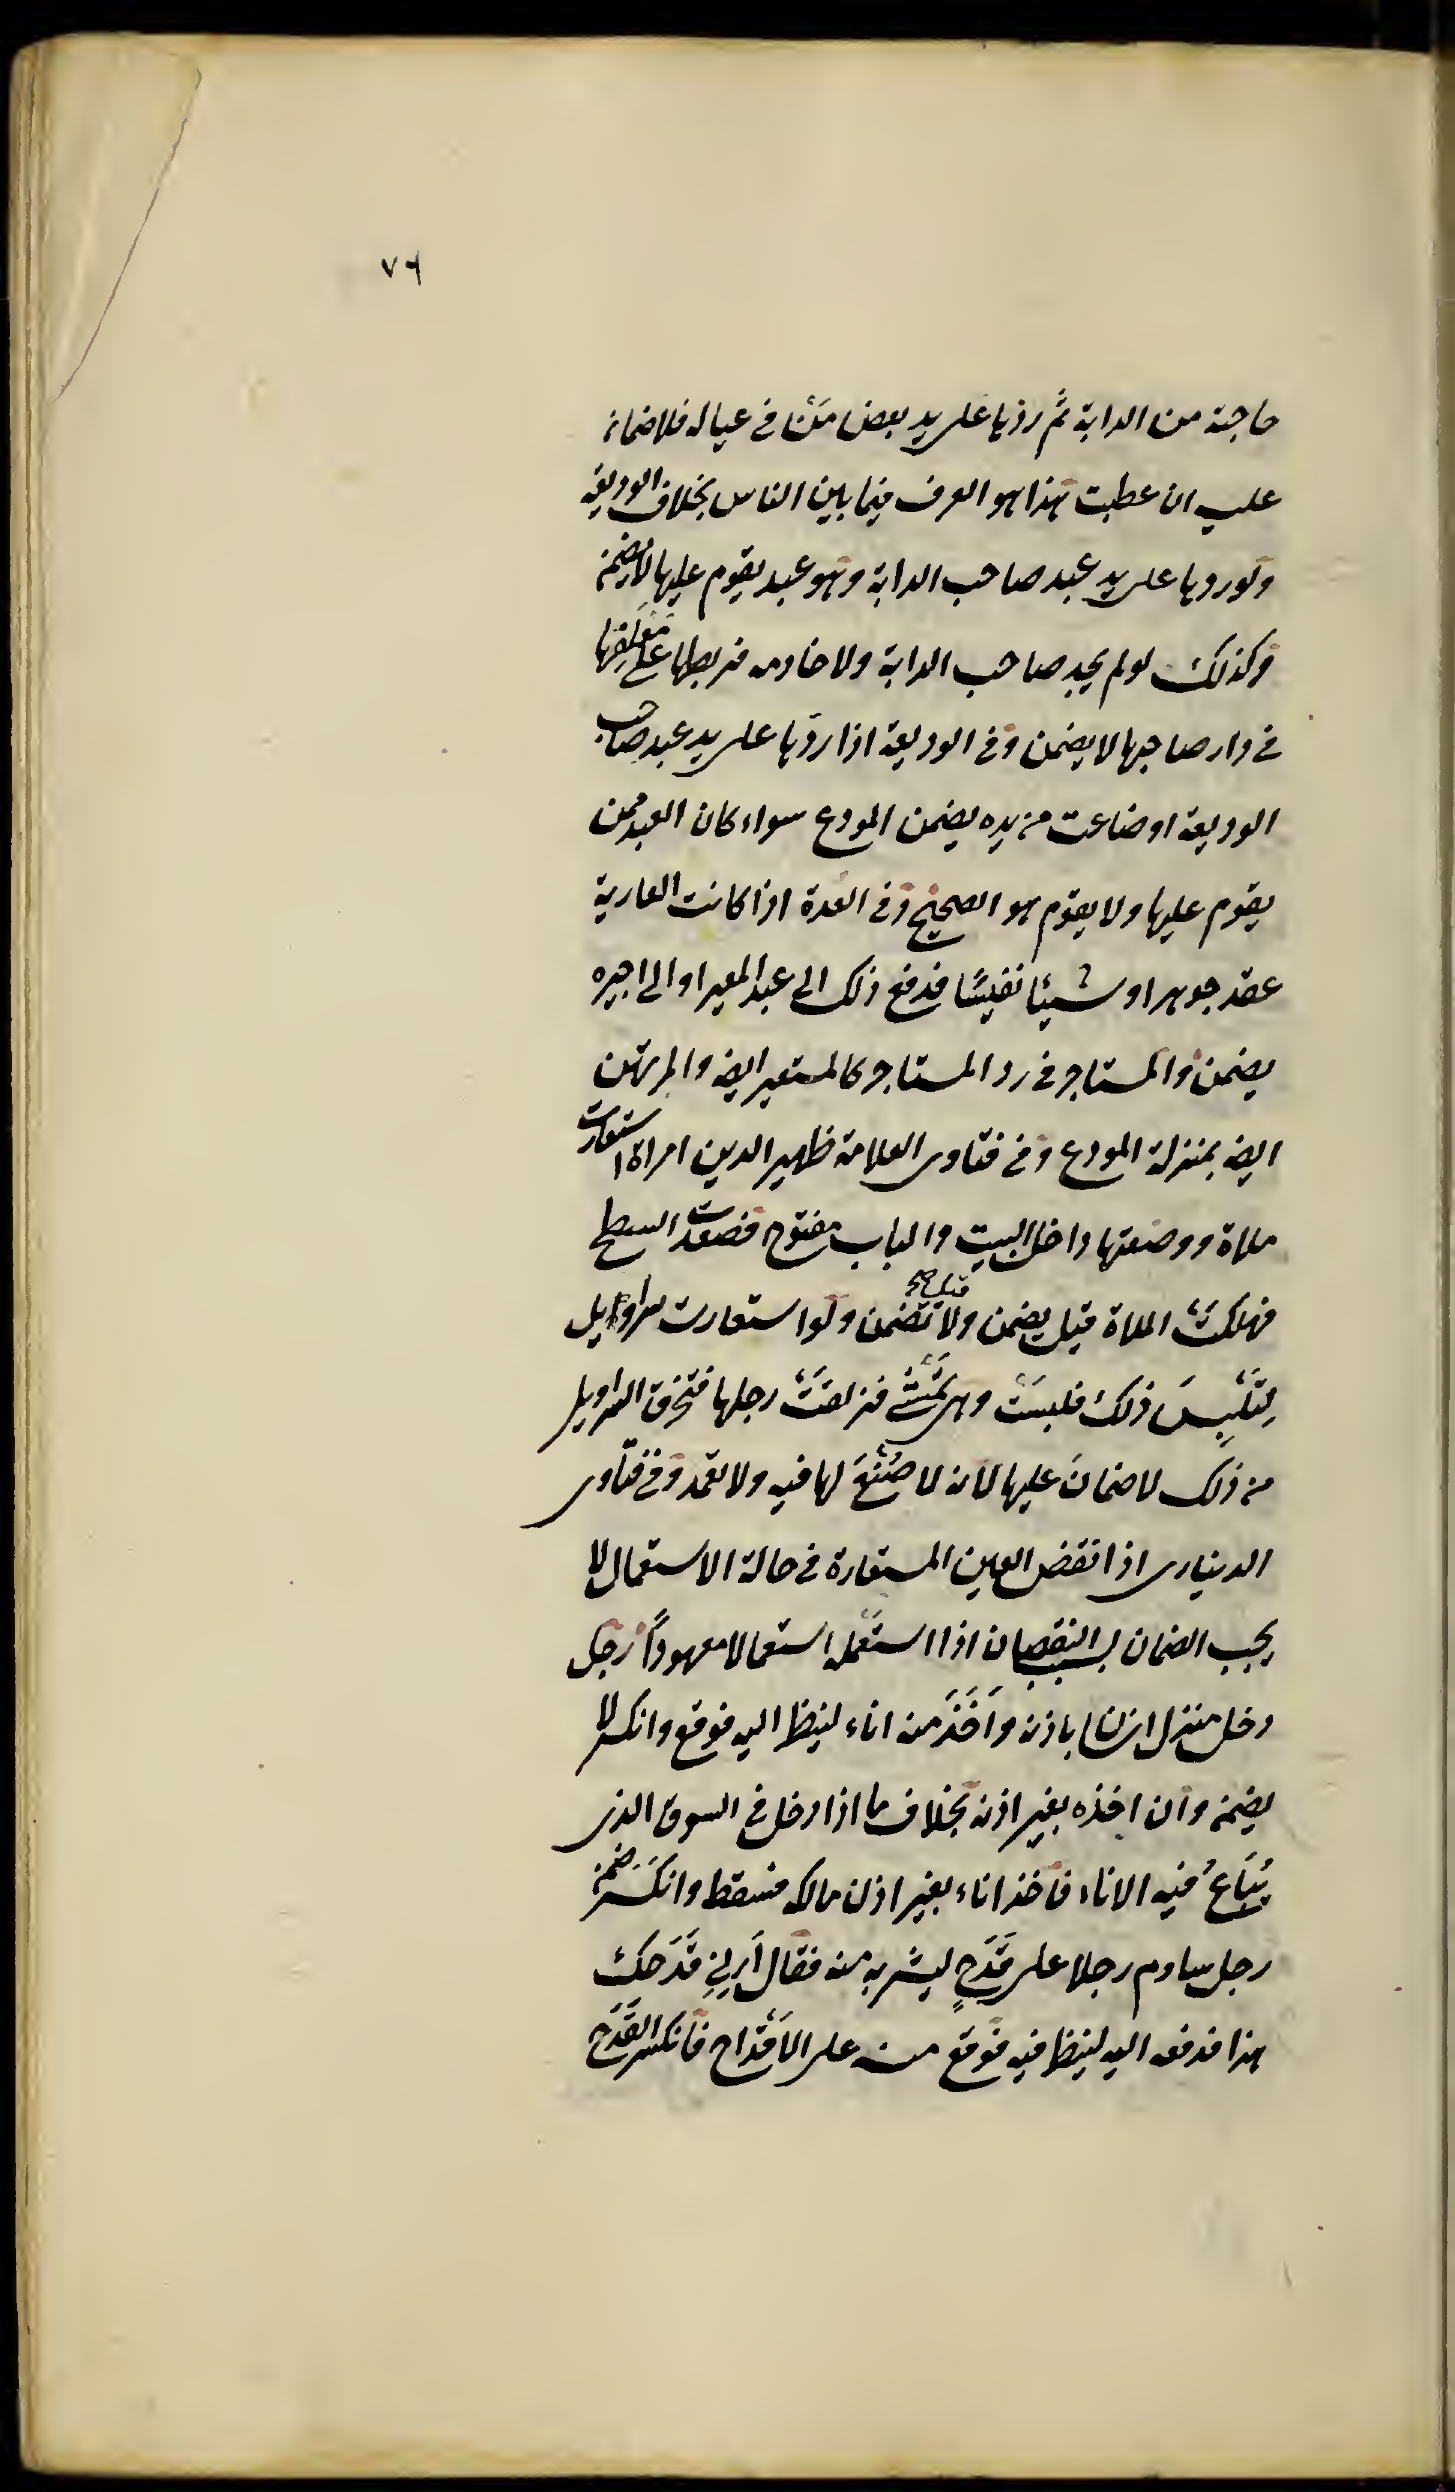 ٧٦
حاجته من الدابة ثم ردها على يد بعض مَنْ في عياله فلا ضمان
عليه ان عطبت هذا هو العرف فيما بين الناس بخلاف الوديعة
ولو ردها على يد عبد صاحب الدابة وهو عبد يقوم عليها لا يضمن
وكذلك لو لم يجد صاحب الدابة ولا خادمه فربطها على مَعْلَفِها
في دار صاحبها لا يضمن وفي الوديعة اذا ردّها على يد عبد صاحب
الوديعة او ضاعت من يده يضمن المودع سواء كان العبد ممن
يقوم عليها ولا يقوم هو الصحيح وفي العدة اذا كانت العارية
عقد جوهر او شيئا نفيسًا فدفع ذلك الى عبد المعير او الى اجيره
يضمن والمستاجر في رد المستاجر كالمستعير ايضا والمرتهن
ايضا بمنزلة المودع وفي فتاوى العلامة ظهير الدين امراة استعارت
ملاة ووضعتها داخل البيت والباب مفتوح فصعدت السطح
فهلكَتْ الملاة قيل يضمن وقيل لا تضمن ولو استعارت سراويل
لِتَلْبِسَ ذلك فلبسَتْ وهي تَمْشي فزلقَتْ رجلها فتخرق السراويل
من ذلك لا ضمانَ عليها لانه لا صُنْعَ لها فيه ولا تعمد وفي فتاوى
الديناري اذا نقض العين المستعارة في حالة الاستعمال لا
يجب الضمان بسبب النقصان اذا استَعْمله استعمالا معهوداً رجل
دخل منزل انسان باذنه واَخَذَ منه اناء لينظر اليه فوقع وانكسر لا
يضمن وان اخذه بغير اذنه بخلاف ما اذا دخل في السوق الذى
يُبَاعُ فيه الاناء فاخذ اناء بغير اذن مالكه فسقط وانكَسَر ضمن
رجل ساوم رجلا على قَدَحٍ ليشربه منه فقال اَرِنِي قَدَحَك
هذا فدفعه اليه لينظر فيه فوقع منه على الاَقْداح فانكسر القَدَح